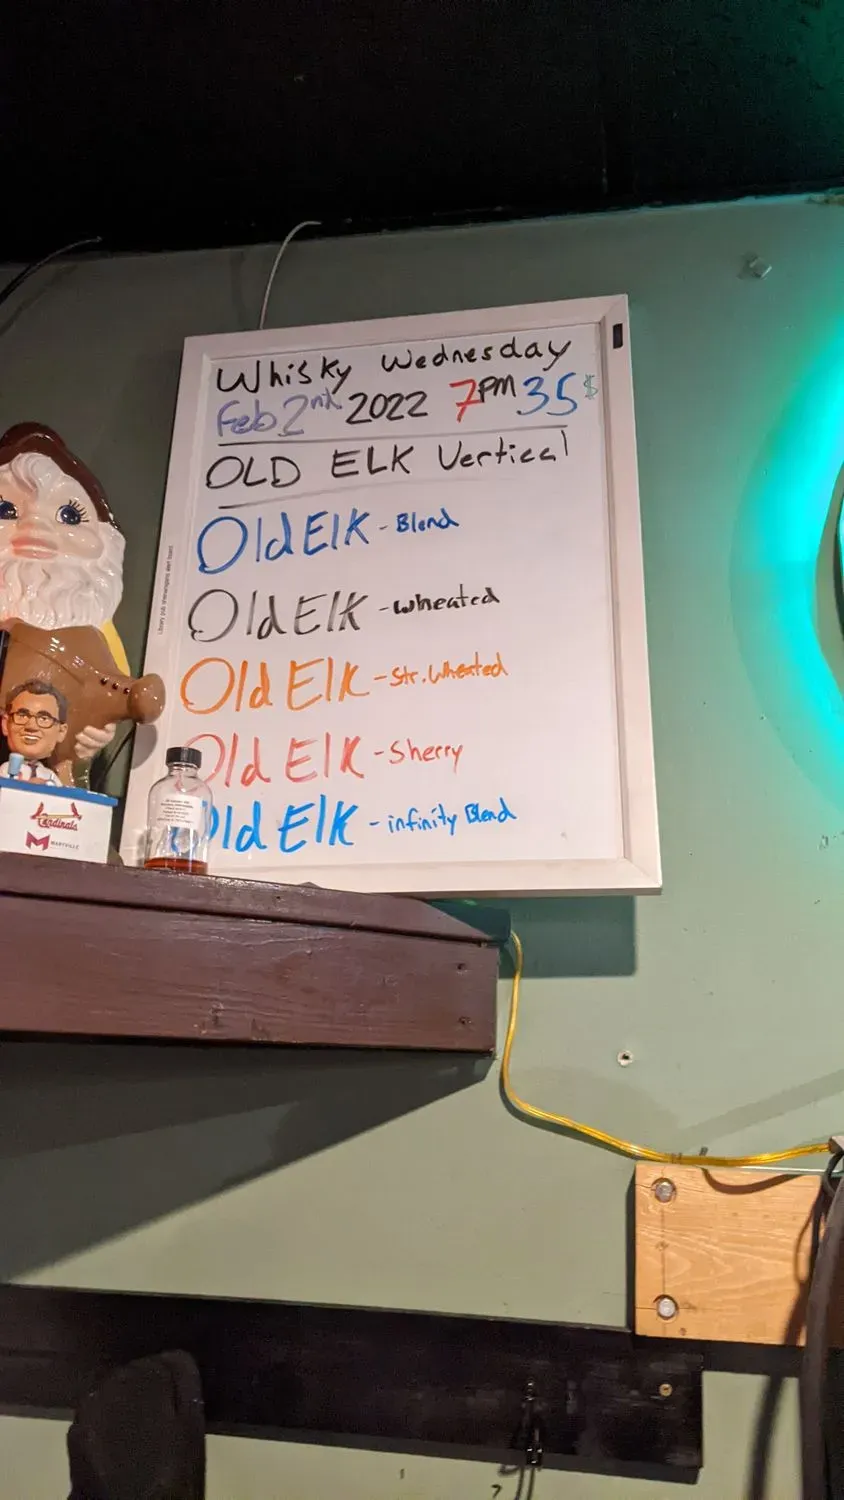 Whisky Wednesday
Feb 2nd 2022 7PM 35$
OLD ELK Vertical
Old Elk - Blend
Old Elk - wheated
Old Elk - Str. Wheated
Old Elk - Sherry
Old Elk - infinity Blend
Cardinals
MARYVILLE